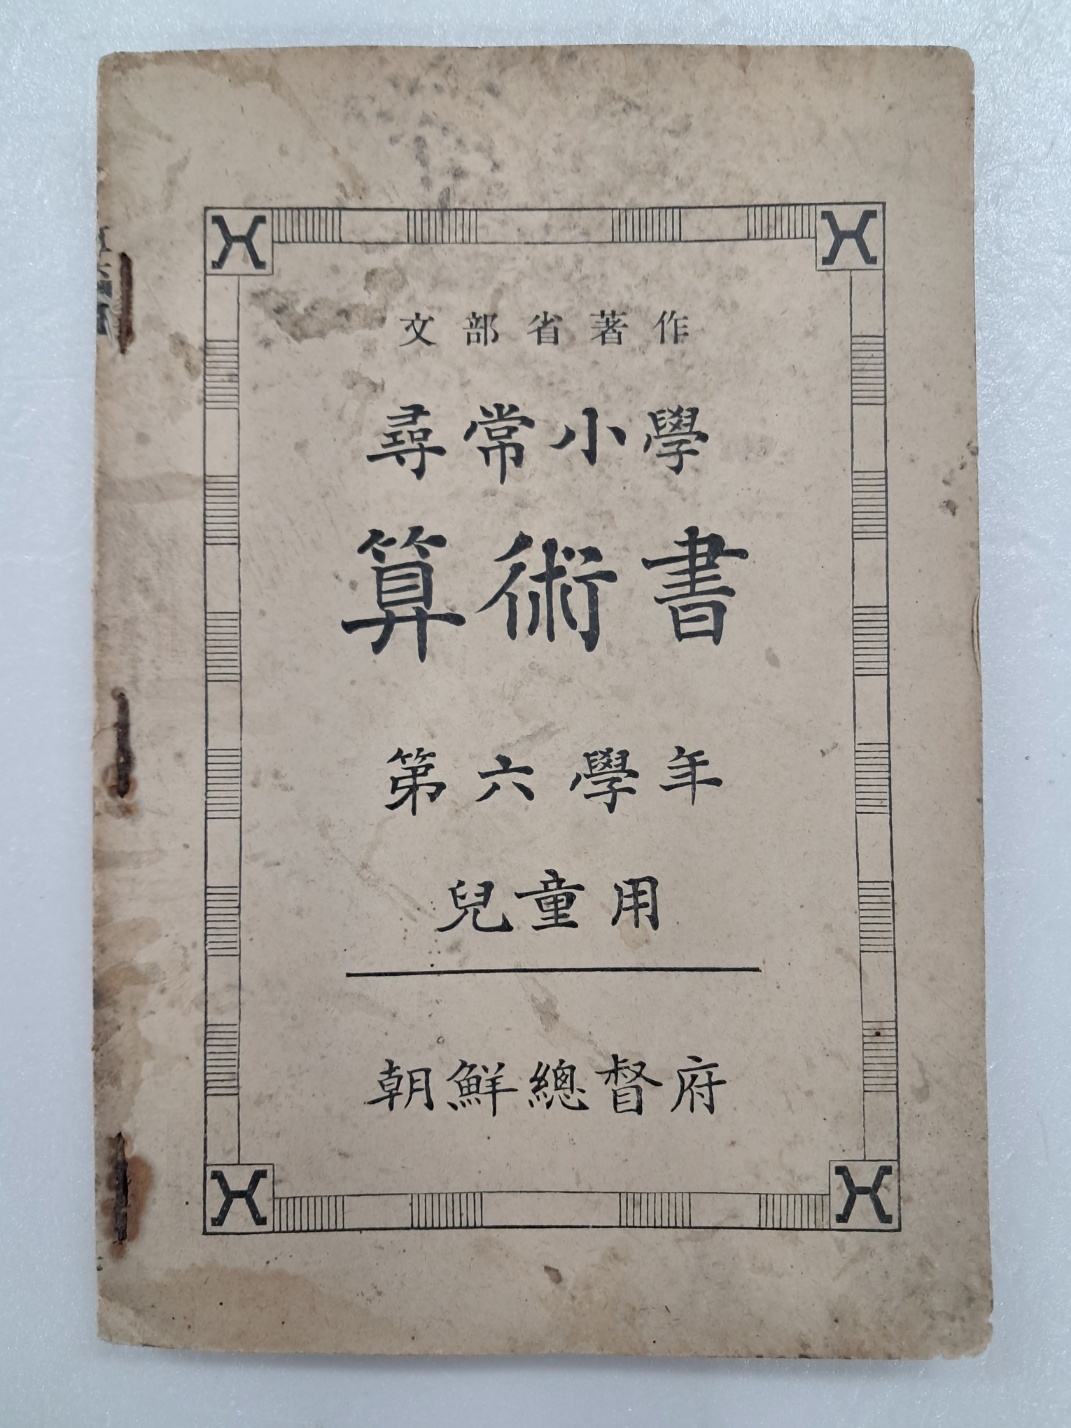 文部省著作
尋常小學
算術書
第六學年
兒童用
朝鮮總督府